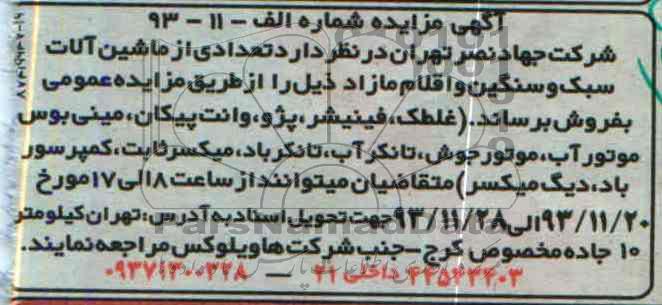 آگهی مزایده شماره الف - ۱۱ - ۹۳
شرکت جهاد نصر تهران در نظر دارد تعدادی از ماشین آلات
سبک و سنگین و اقلام مازاد ذیل را از طریق مزایده عمومی
بفروش برساند. (غلطک، فینیشر، پژو، وانت پیکان، مینی بوس
موتور آب، موتور جوش، تانکر آب، تانکر باد، میکسر ثابت، کمپرسور
باد، دیگ میکسر) متقاضیان میتوانند از ساعت ۸ الی ۱۷ مورخ
۹۳/۱۱/۲۰ الی ۹۳/۱۱/۲۸ جهت تحویل اسناد به آدرس: تهران کیلومتر
۱۰ جاده مخصوص کرج - جنب شرکت هاویلوکس مراجعه نمایند.
داخلی ۲۱ —
ParsNamadData